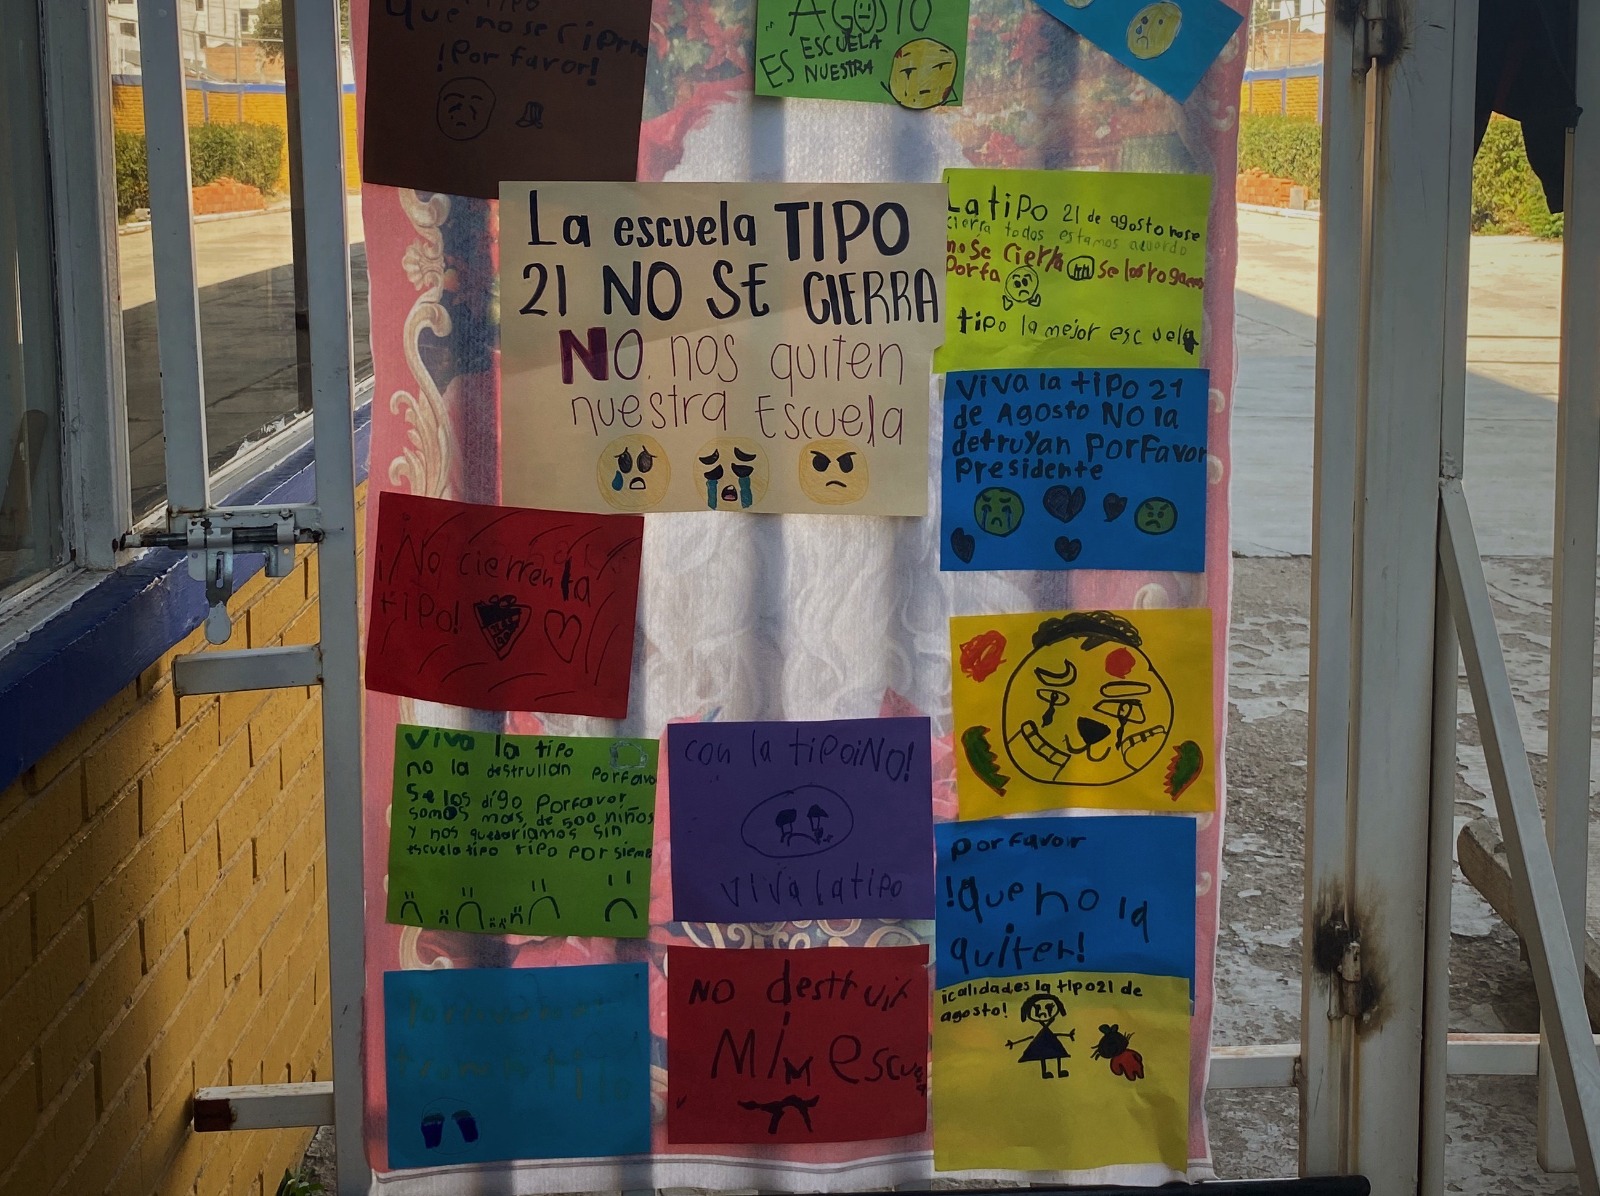 que no se cierre
¡Por favor!
AGOSTO
ES ESCUELA
NUESTRA
La escuela TIPO
21 NO SE CIERRA
NO nos quiten
nuestra Escuela
La tipo 21 de agosto nose
cierra todos estamos acuerdo
no se cierra se los rogamos
Porfa
tipo la mejor escuela
Viva la tipo 21
de Agosto NO la
detruyan PorFavor
Presidente
¡No cierren la
tipo!
Viva la tipo
no la destrullan Porfavor
Se los digo Porfavor
somos mas de 500 niños
y nos quedariamos sin
escuela tipo tipo por siempre
con la tipo¡NO!
viva la tipo
Por favor
!Que no la
quiten!
NO destruir
Mi escuela
¡calidades la tipo21 de
agosto!